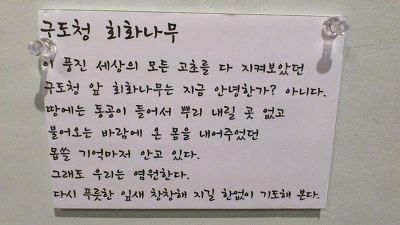 구도청 회화나무
이 풍진 세상의 모든 고초를 다 지켜보았던
구도청 앞 회화나무는 지금 안녕한가? 아니다.
땅에는 통공이 들어서 뿌리 내릴 곳 없고
불어오는 바람에 온 몸을 내어주었던
몹쓸 기억마저 안고 있다.
그래도 우리는 염원한다.
다시 푸릇한 잎새 창창해 지길 한없이 기도해 본다.